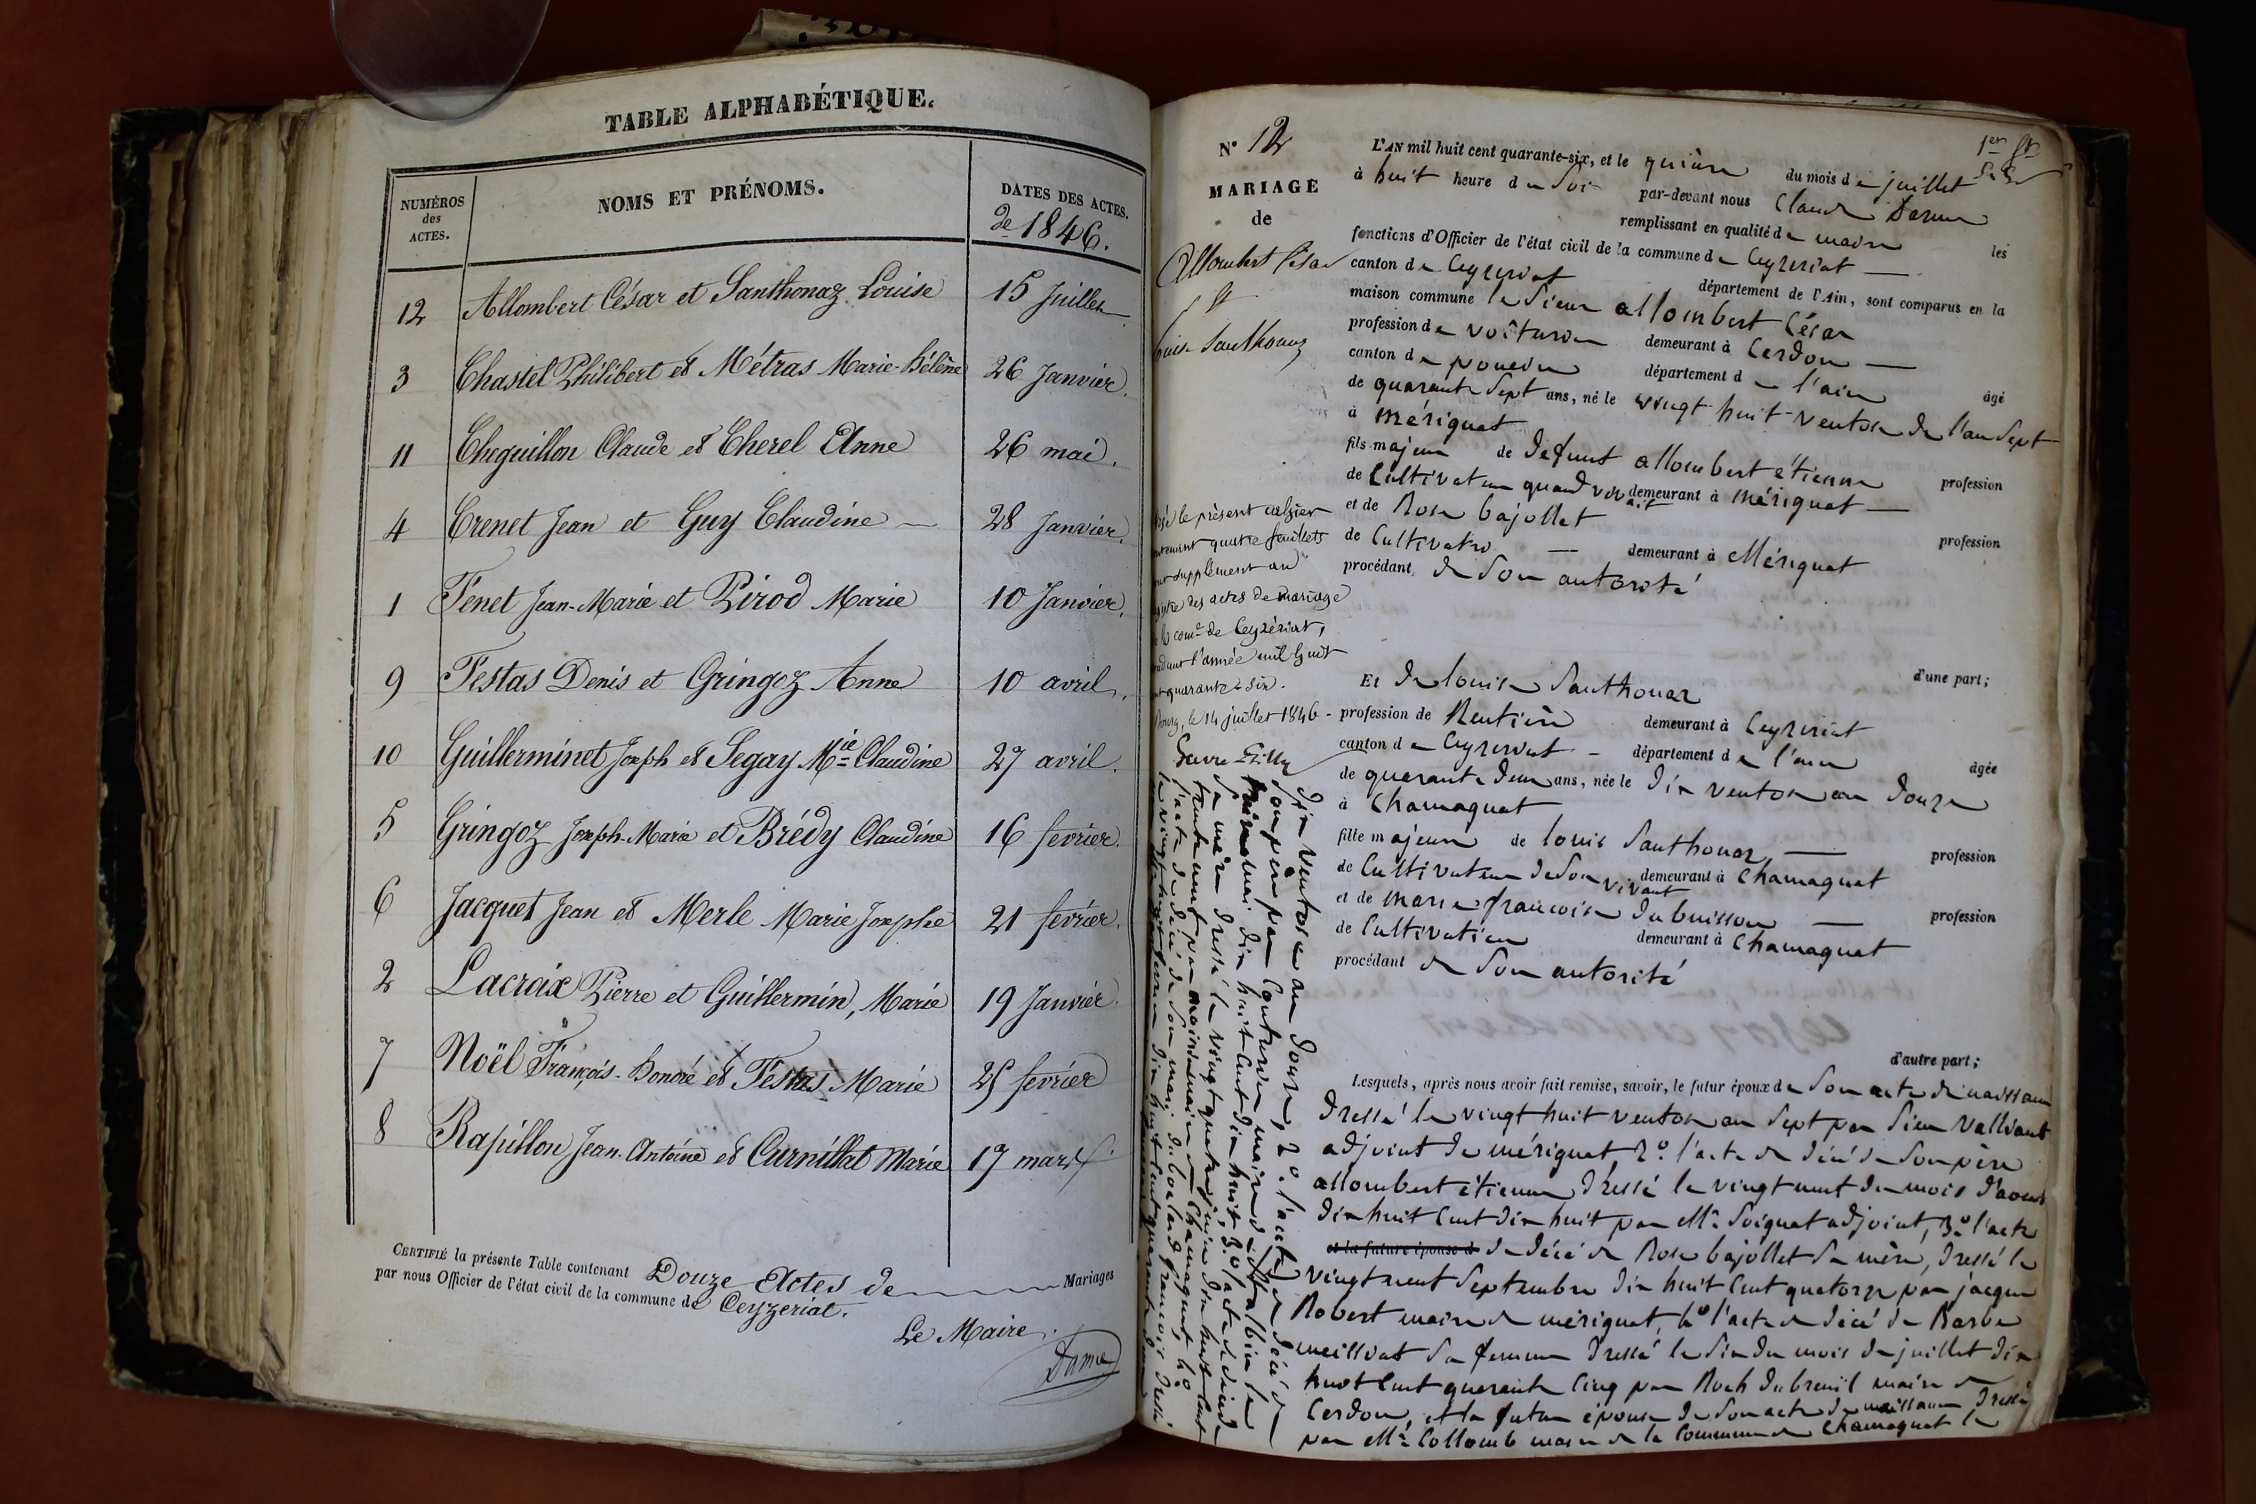 TABLE ALPHABÉTIQUE.
NUMÉROS des ACTES.
NOMS ET PRÉNOMS.
DATES DES ACTES.
de 1846.
12 Allombert César et Santhonaz Louise 15 Juillet
3 Chastel Philibert et Métras Marie-Hélène 26 Janvier.
11 Choquillon Claude et Cherel Anne 26 mai.
4 Crenet Jean et Guy Claudine 28 Janvier.
1 Fenet Jean-Marie et Pirod Marie 10 Janvier.
9 Festas Denis et Gringoz Anne 10 avril.
10 Guillerminet Joseph et Segay Mie Claudine 27 avril.
5 Gringoz Joseph-Marie et Brédy Claudine 16 fevrier.
6 Jacquet Jean et Merle Marie Josephe 21 fevrier.
2 Lacroix Pierre et Guillermin, Marie 19 Janvier.
7 Noël François-honoré et Festas Marie 25 fevrier
8 Rapillon Jean-Antoine et Curnillat Marie 17 mars.
CERTIFIÉ la présente Table contenant Douze Actes de Mariages
par nous Officier de l'état civil de la commune de Ceyzeriat.
Le Maire.
N° 12
MARIAGE
de
Allombert César
et
Louise Santhonaz
le présent cahier
quatre feuillets
supplément au
des actes de mariage
com.e de Ceyzériat,
l'année mil huit
quarante-six.
Bourg, le 14 juillet 1846.
1er
L'AN mil huit cent quarante-six, et le quinze du mois de juillet
à huit heure du soir par-devant nous Claude
remplissant en qualité de maire les
fonctions d'Officier de l'état civil de la commune de Ceyzeriat
canton de Ceyzeriat département de l'Ain, sont comparus en la
maison commune le sieur allombert César
profession de voiturier demeurant à Cerdon
canton de poncin département de l'ain âgé
de quarante sept ans, né le vingt huit ventose de l'an sept
à mérignat
fils majeur de défunt allombert étienne profession
de Cultivateur quand vivait demeurant à mérignat
et de Rose bajollet profession
de Cultivatrice demeurant à Mérignat
procédant de son autorité
d'une part;
Et de louise Santhonaz
profession de Rentière demeurant à Ceyzeriat
canton de Ceyzeriat département de l'ain âgée
de quarante deux ans, née le dix ventose an douze
à Chamagnat
fille majeure de louis Santhonaz profession
de Cultivateur de son vivant demeurant à Chamagnat
et de marie françoise dubuisson profession
de Cultivatrice demeurant à Chamagnat
procédant de son autorité
d'autre part;
Lesquels, après nous avoir fait remise, savoir, le futur époux de son acte de naissance
dressé le vingt huit ventose an sept par sieur Valliant
adjoint de mérignat, 2°. l'acte de décé de son père
allombert étienne dressé le vingt neuf du mois d'aout
dix huit cent dix huit par Mr. Soignat adjoint, 3°. l'acte
et la future épouse d de décé de Rose bajollet sa mère, dressé le
vingt neuf Septembre dix huit cent quatorze par jacque
Robert maire de mérignat, 4° l'acte de décé de Barbe
meillvat sa femme dressé le six du mois de juillet dix
huit cent quarante cinq par Roch dubreuil maire de
Cerdon, et la future épouse de son acte de naissance dressé
par Mr. Collomb maire de la Commune de Chamagnat le
dix ventose an douze, 2°. l'acte de décé de
son père par Couturier maire
mai dix huit cent dix huit, 3°. l'acte de décé de
sa mère dressé le vingt quatre juin dix huit cent
trente neuf par maire de Chamagnat, 4°
l'acte de décé de son mari duboclard françois dressé